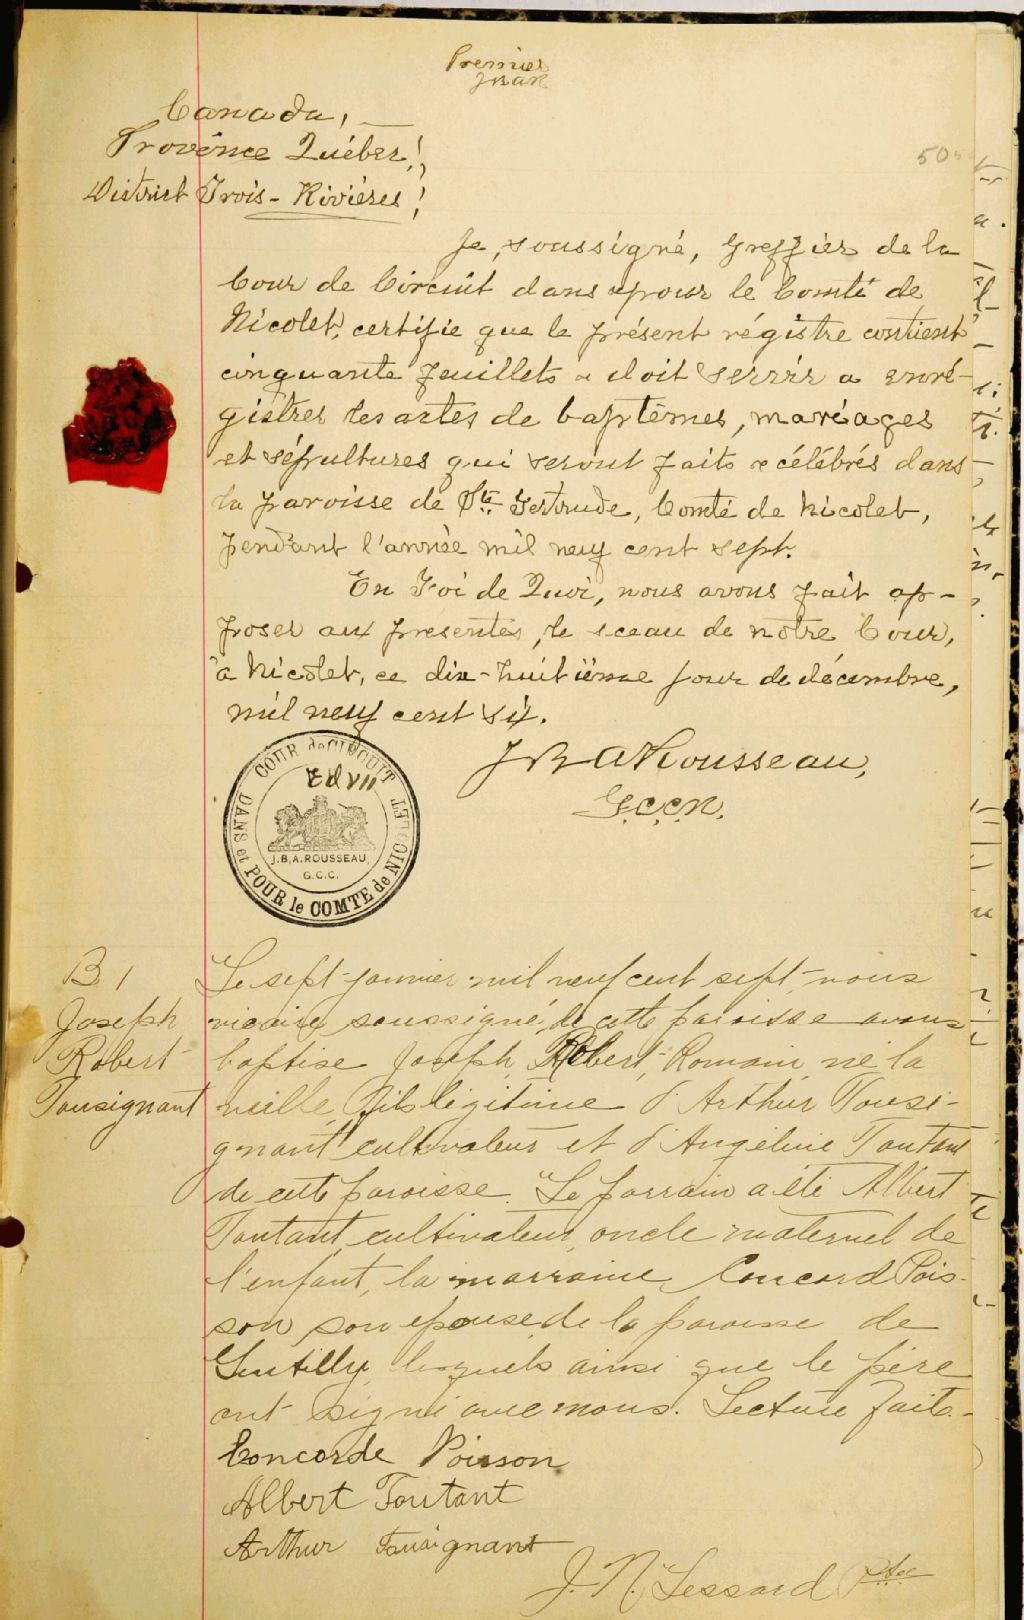 Premier
JBAR
Canada, —
Province Québec,!
District Trois-Rivières!
50
Je, soussigné, Greffier de la
Cour de Circuit dans & pour le Comté de
Nicolet, certifie que le présent régistre contient
cinquante feuillets & doit servir a enré-
gistrer les actes de baptêmes, mariages
et sépultures qui seront faits & célébrés dans
la paroisse de Ste Gertrude, Comté de Nicolet,
pendant l'année mil neuf cent sept.
En Foi de Quoi, nous avons fait ap-
poser aux presentes, le sceau de notre Cour,
à Nicolet, ce dix-huitième jour de décembre,
mil neuf cent six.
JBARousseau,
G.C.C.N.
COUR de CIRCUIT
DANS et POUR le COMTE de NICOLET
ED VII
J.B.A.ROUSSEAU,
G.C.C.
B 1
Joseph
Robert
Tousignant
Le sept janvier mil neuf cent sept, nous
vicaire soussigné, de cette paroisse avons
baptise Joseph, Robert, Romain, né la
veille, fils légitime d'Arthur Tousi-
gnant cultivateur et d'Angéline Toutant
de cette paroisse. Le parrain a été Albert
Toutant, cultivateur, oncle maternel de
l'enfant, la marraine Concord Pois-
son son épouse, de la paroisse de
Gentilly, lesquels ainsi que le père
ont signé avec nous. Lecture faite.
Concorde Poisson
Albert Toutant
Arthur Tousignant
J. N. Lessard Ptre